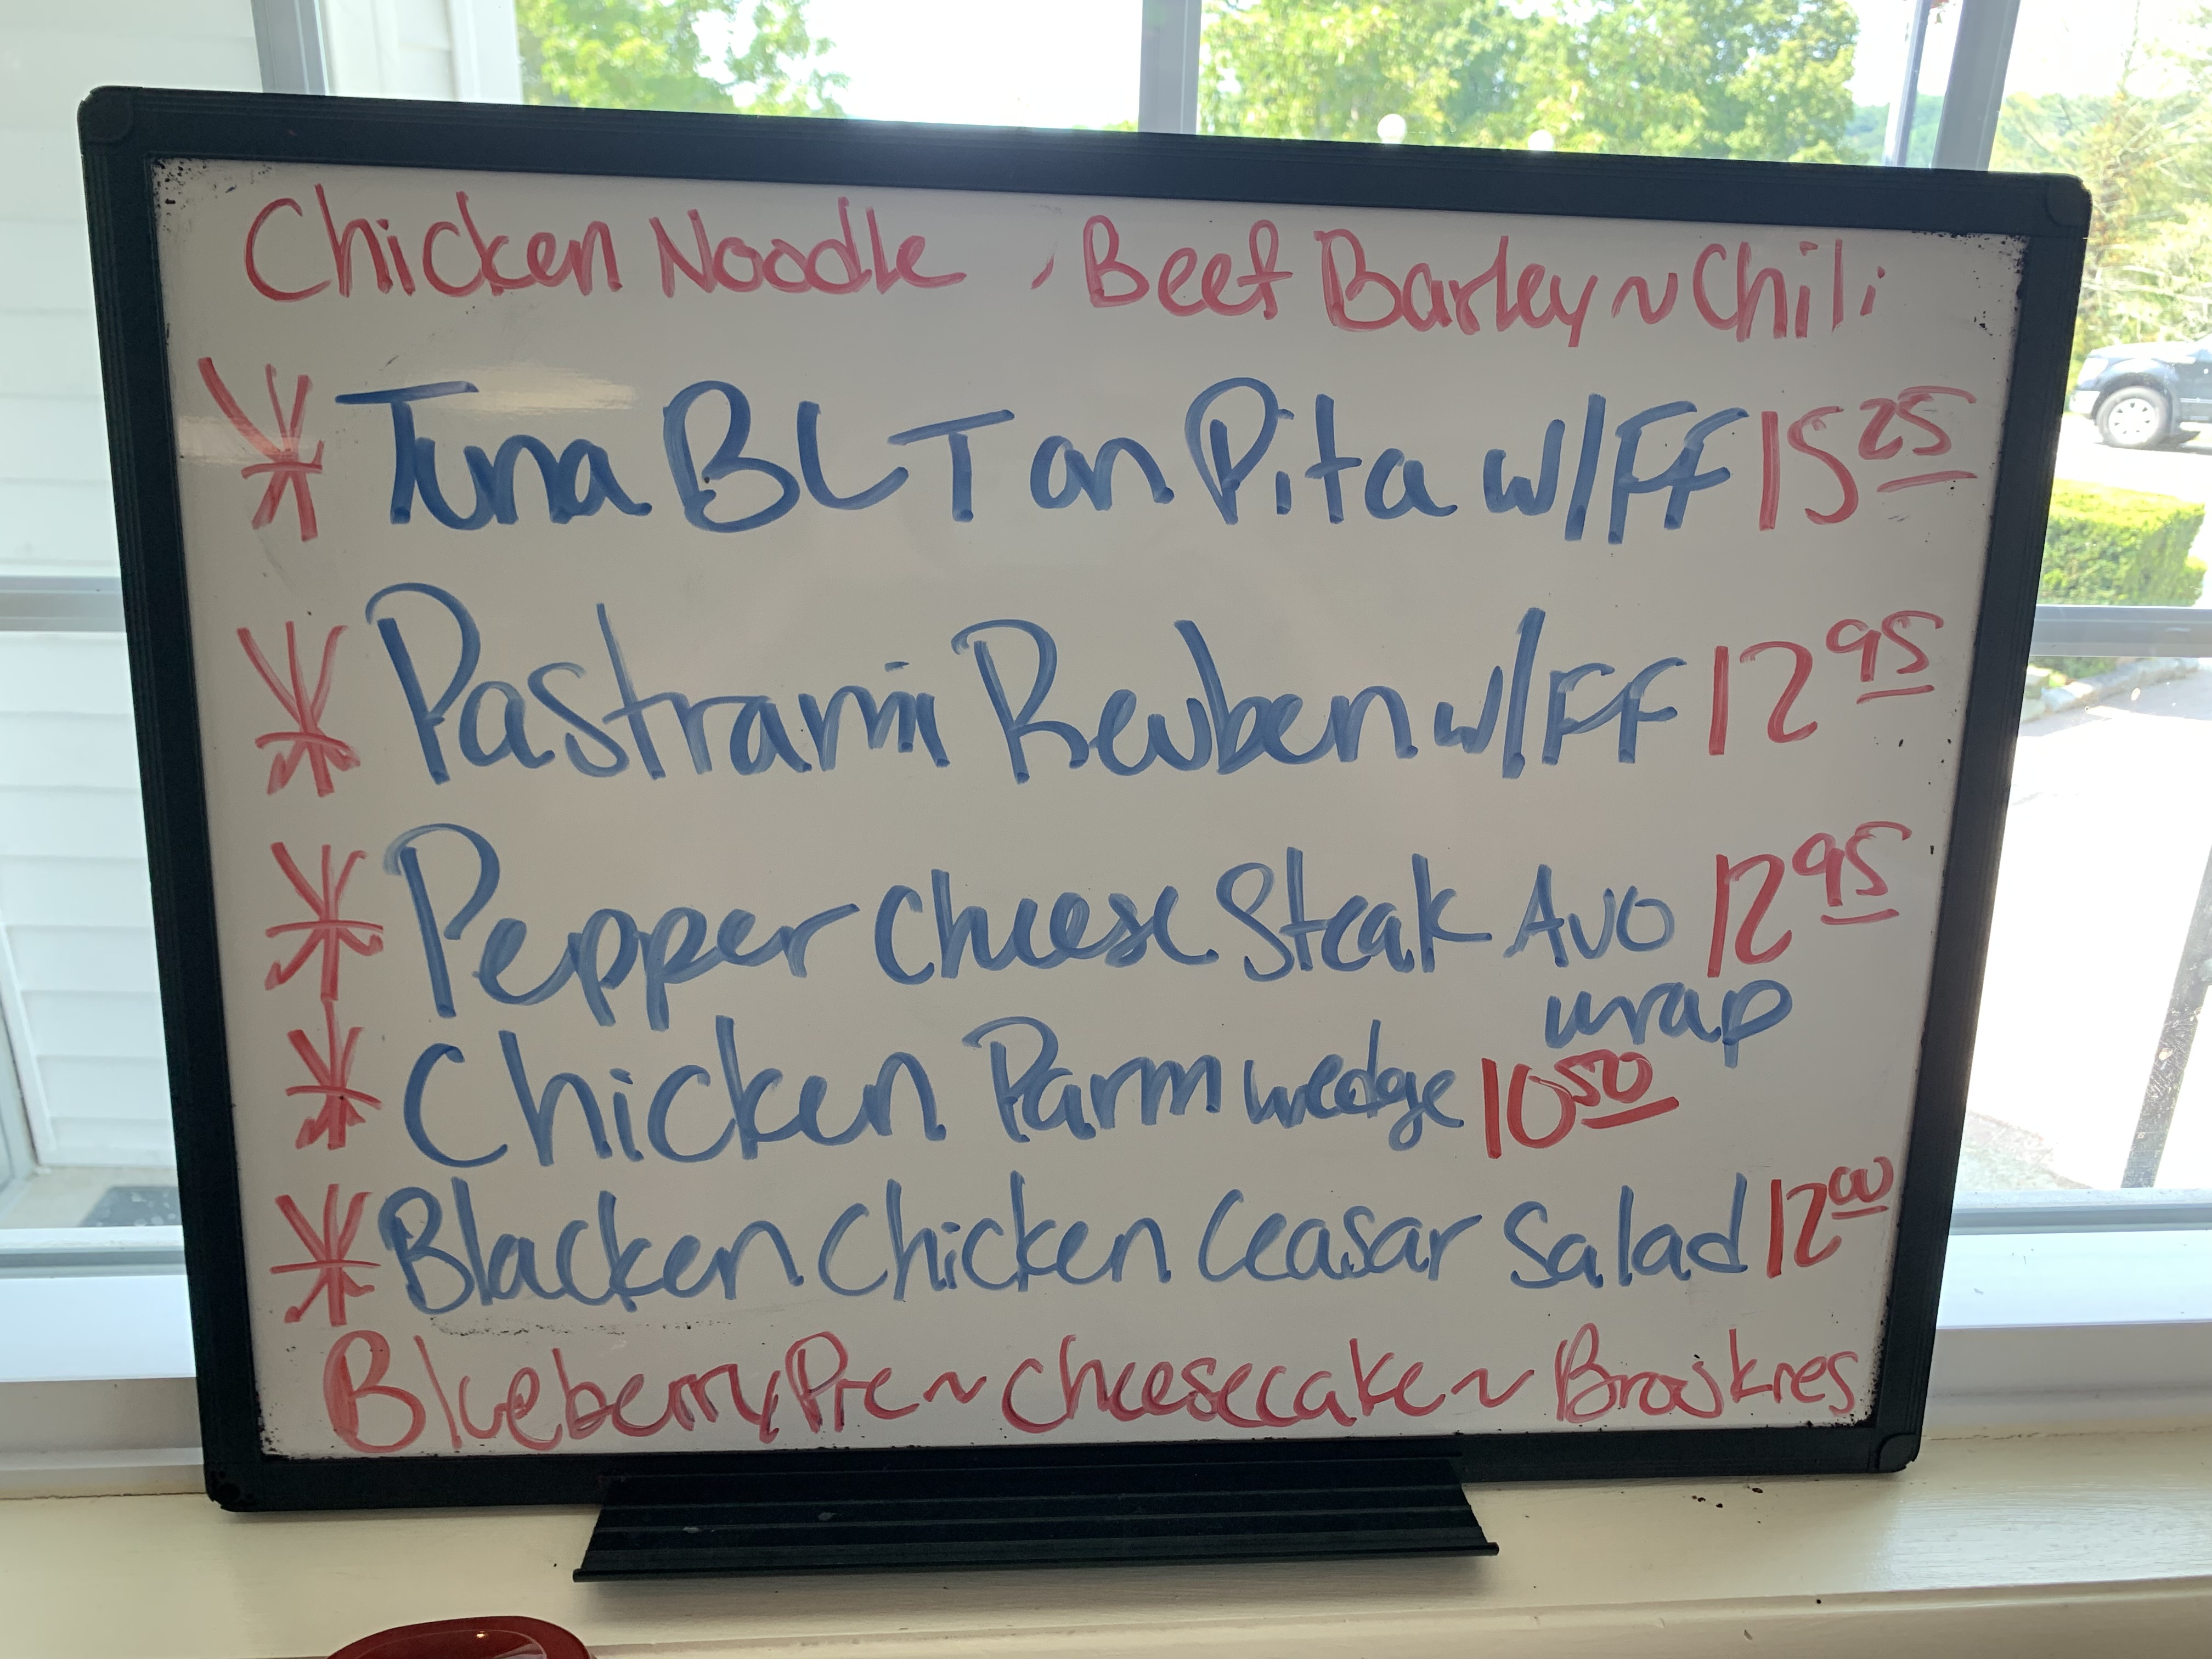 Chicken Noodle , Beef Barley ~ Chili
* Tuna BLT on Pita w/FF 15 25
* Pastrami Reuben w/FF 12 95
* Pepper Cheese Steak Avo 12 95
wrap
* Chicken Parm wedge 10 50
* Blacken Chicken Ceasar Salad 12 00
Blueberry Pie ~ Cheesecake ~